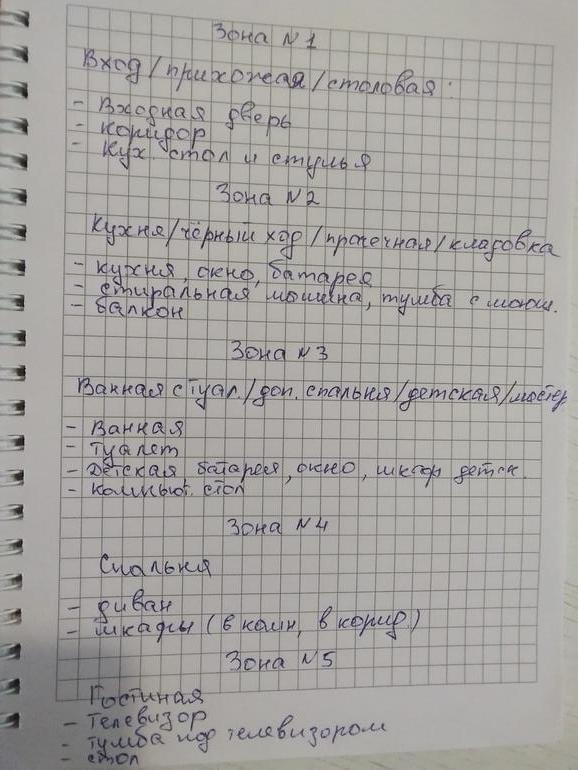 Зона №1
Вход/прихожая/столовая:
- Входная дверь
- коридор
- кух. стол и стулья
Зона №2
Кухня/чёрный ход/прачечная/кладовка
- кухня, окно, батарея
- стиральная машина, тумба с моющ.
- балкон
Зона №3
Ванная с туал./доп. спальня/детская/мастер
- Ванная
- туалет
- Детская батарея, окно, шкаф детск.
- компьют. стол
Зона №4
Спальня
- диван
- шкафы (в комн, в корид.)
Зона №5
Гостиная
- телевизор
- тумба под телевизором
- стол